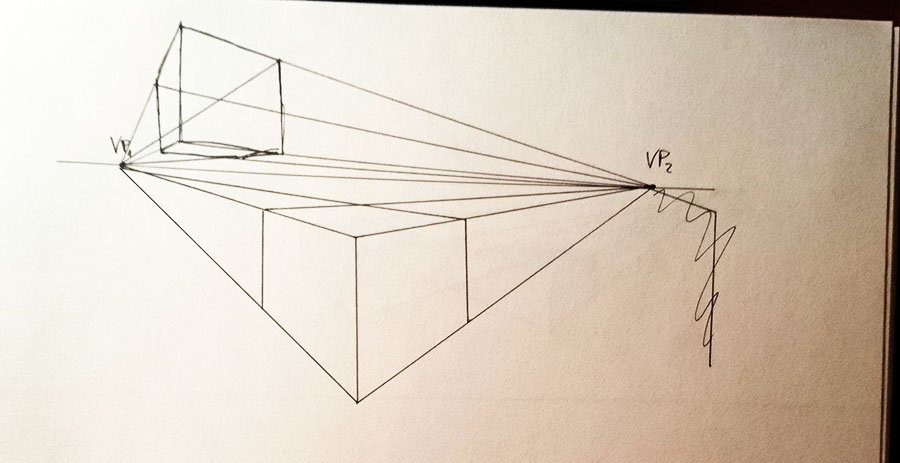 VP₁
VP₂